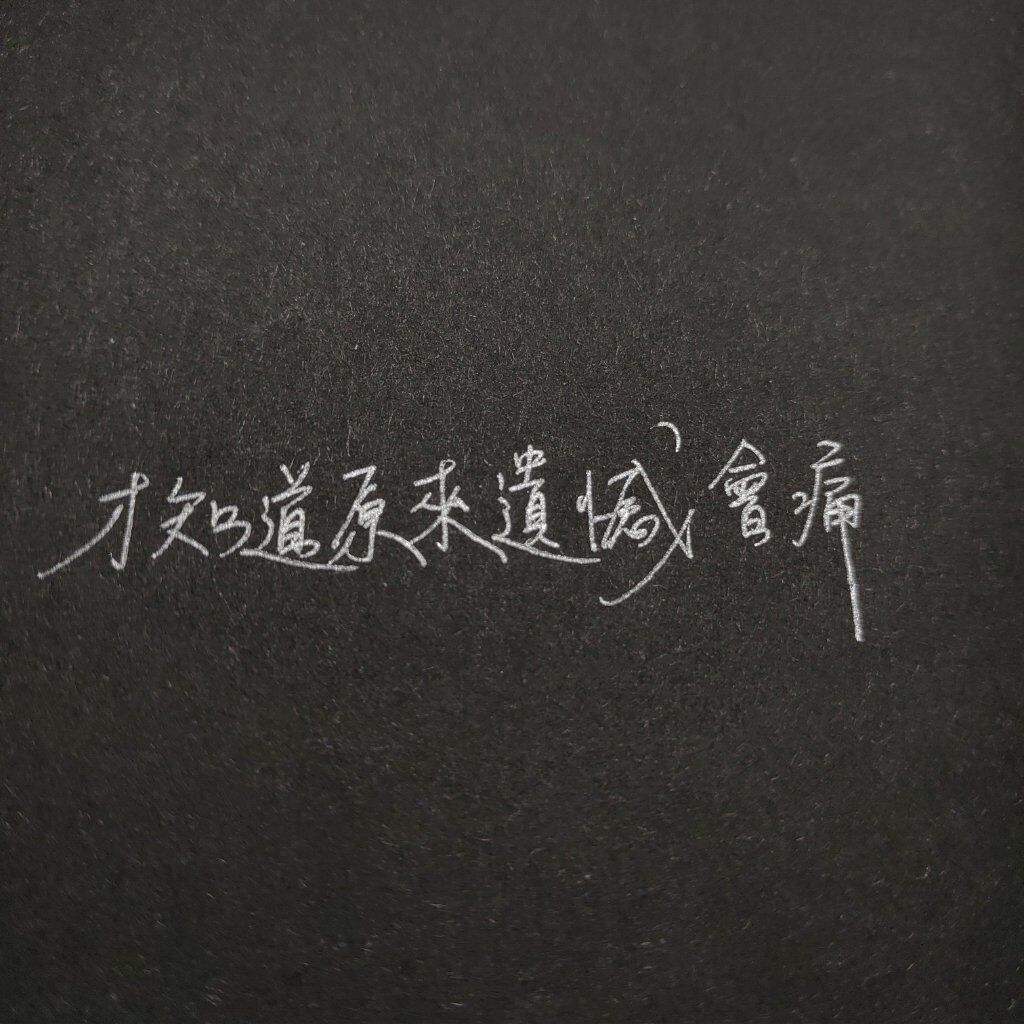 才知道原來遺憾會痛